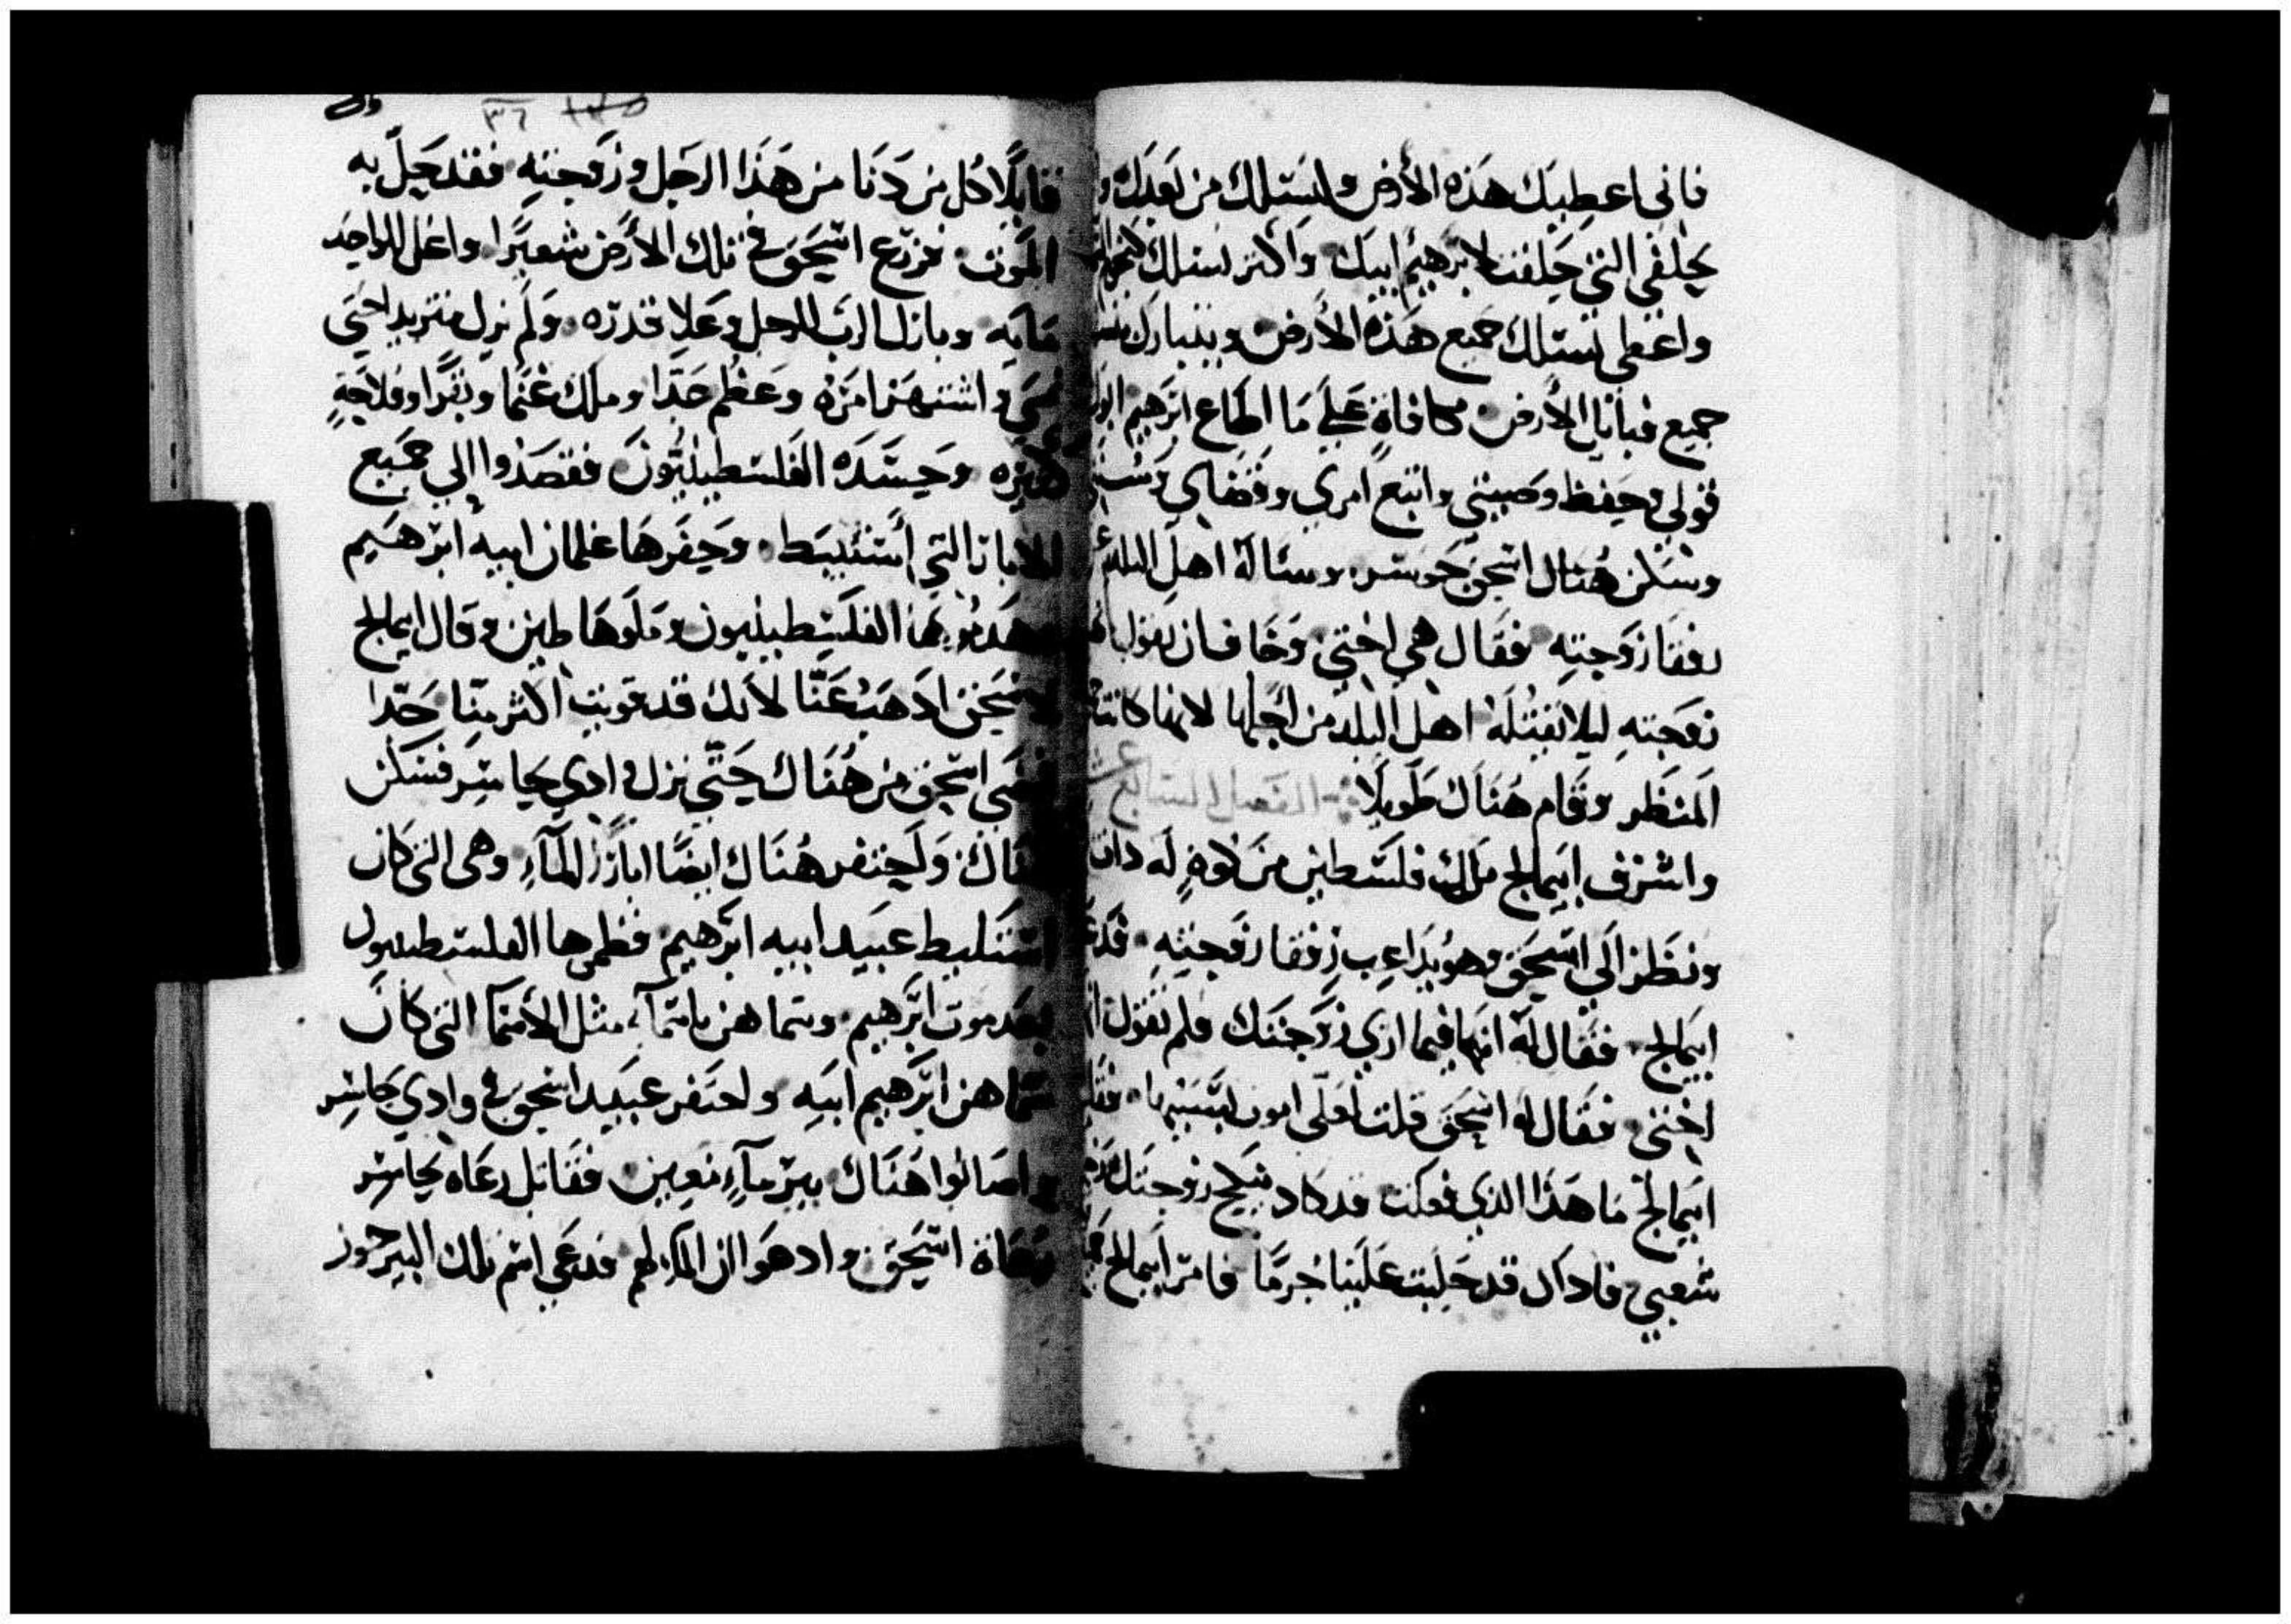 فاني اعطيك هذه الأرض ولنسلك من بعدك و
بحلفي التي حلفت لابرهيم ابيك واكثر نسلك كنجوم
واعطي نسلك جميع هذه الأرض ويتبارك بنسلك
جميع قبايل الأرض مكافاة على ما اطاع ابرهيم ابوك
قولي وحفظ وصيتي واتبع امري وقضاي وسنتي
وسكن هناك اسحق جوسر وسئاله اهل البلد عن
رفقا زوجته فقال هي اختي وخاف ان يقول انها
زوجته ليلا يقتله اهل البلد من اجلها لانها كانت
المنظر وقام هناك طويلا الفصل السابع عشر
واشرف ابيمالخ ملك فلسطين من كوة له دات
ونظر الى اسحق وهو يداعب رفقا زوجته فدعا
ابيمالخ فقال له انها فيما اري زوجتك فلم تقول انها
اختي فقال له اسحق قلت لعلي اموت بسببها فقال
ابيمالخ ما هذا الذي فعلت قد كاد ينكح زوجتك
شعبي فاداك قد جلبت علينا جرما فامر ابيمالخ
٣٦
قايلا كل من دنا من هذا الرجل وزوجته فقد حل به
الموت فزرع اسحق في تلك الأرض شعيرا واغل للواحد
مايه وبارك الرب الرجل وعلا قدره ولم يزل متزيدا حتى
واشتهر امره وعظم جدا وملك غنما وبقرا وفلاحة
كثيره وحسده الفلسطينيون فقصدوا الي جميع
الابار التي استنبط وحفرها غلمان ابيه ابرهيم
وهدموها الفلسطينيون وملوها طين وقال ابيمالخ
لاسحق ادهب عنا لانك قد قويت اكثر منا جدا
فمضى اسحق من هناك حتى نزل وادي جاسر فسكن
هناك واحتفر هناك ايضا ابار الماء وهي التي كان
استنبط عبيد ابيه ابرهيم فطمها الفلسطينيون
بعد موت ابرهيم وسماهن باسماء مثل الأسما التي كان
سماهن ابرهيم ابيه واحتفر عبيد اسحق في وادي جاسر
واصابوا هناك بير ماء معين فقاتل رعاه جاسر
رعاة اسحق وادعوا ان الماء لهم فدعي اسم تلك البير جور